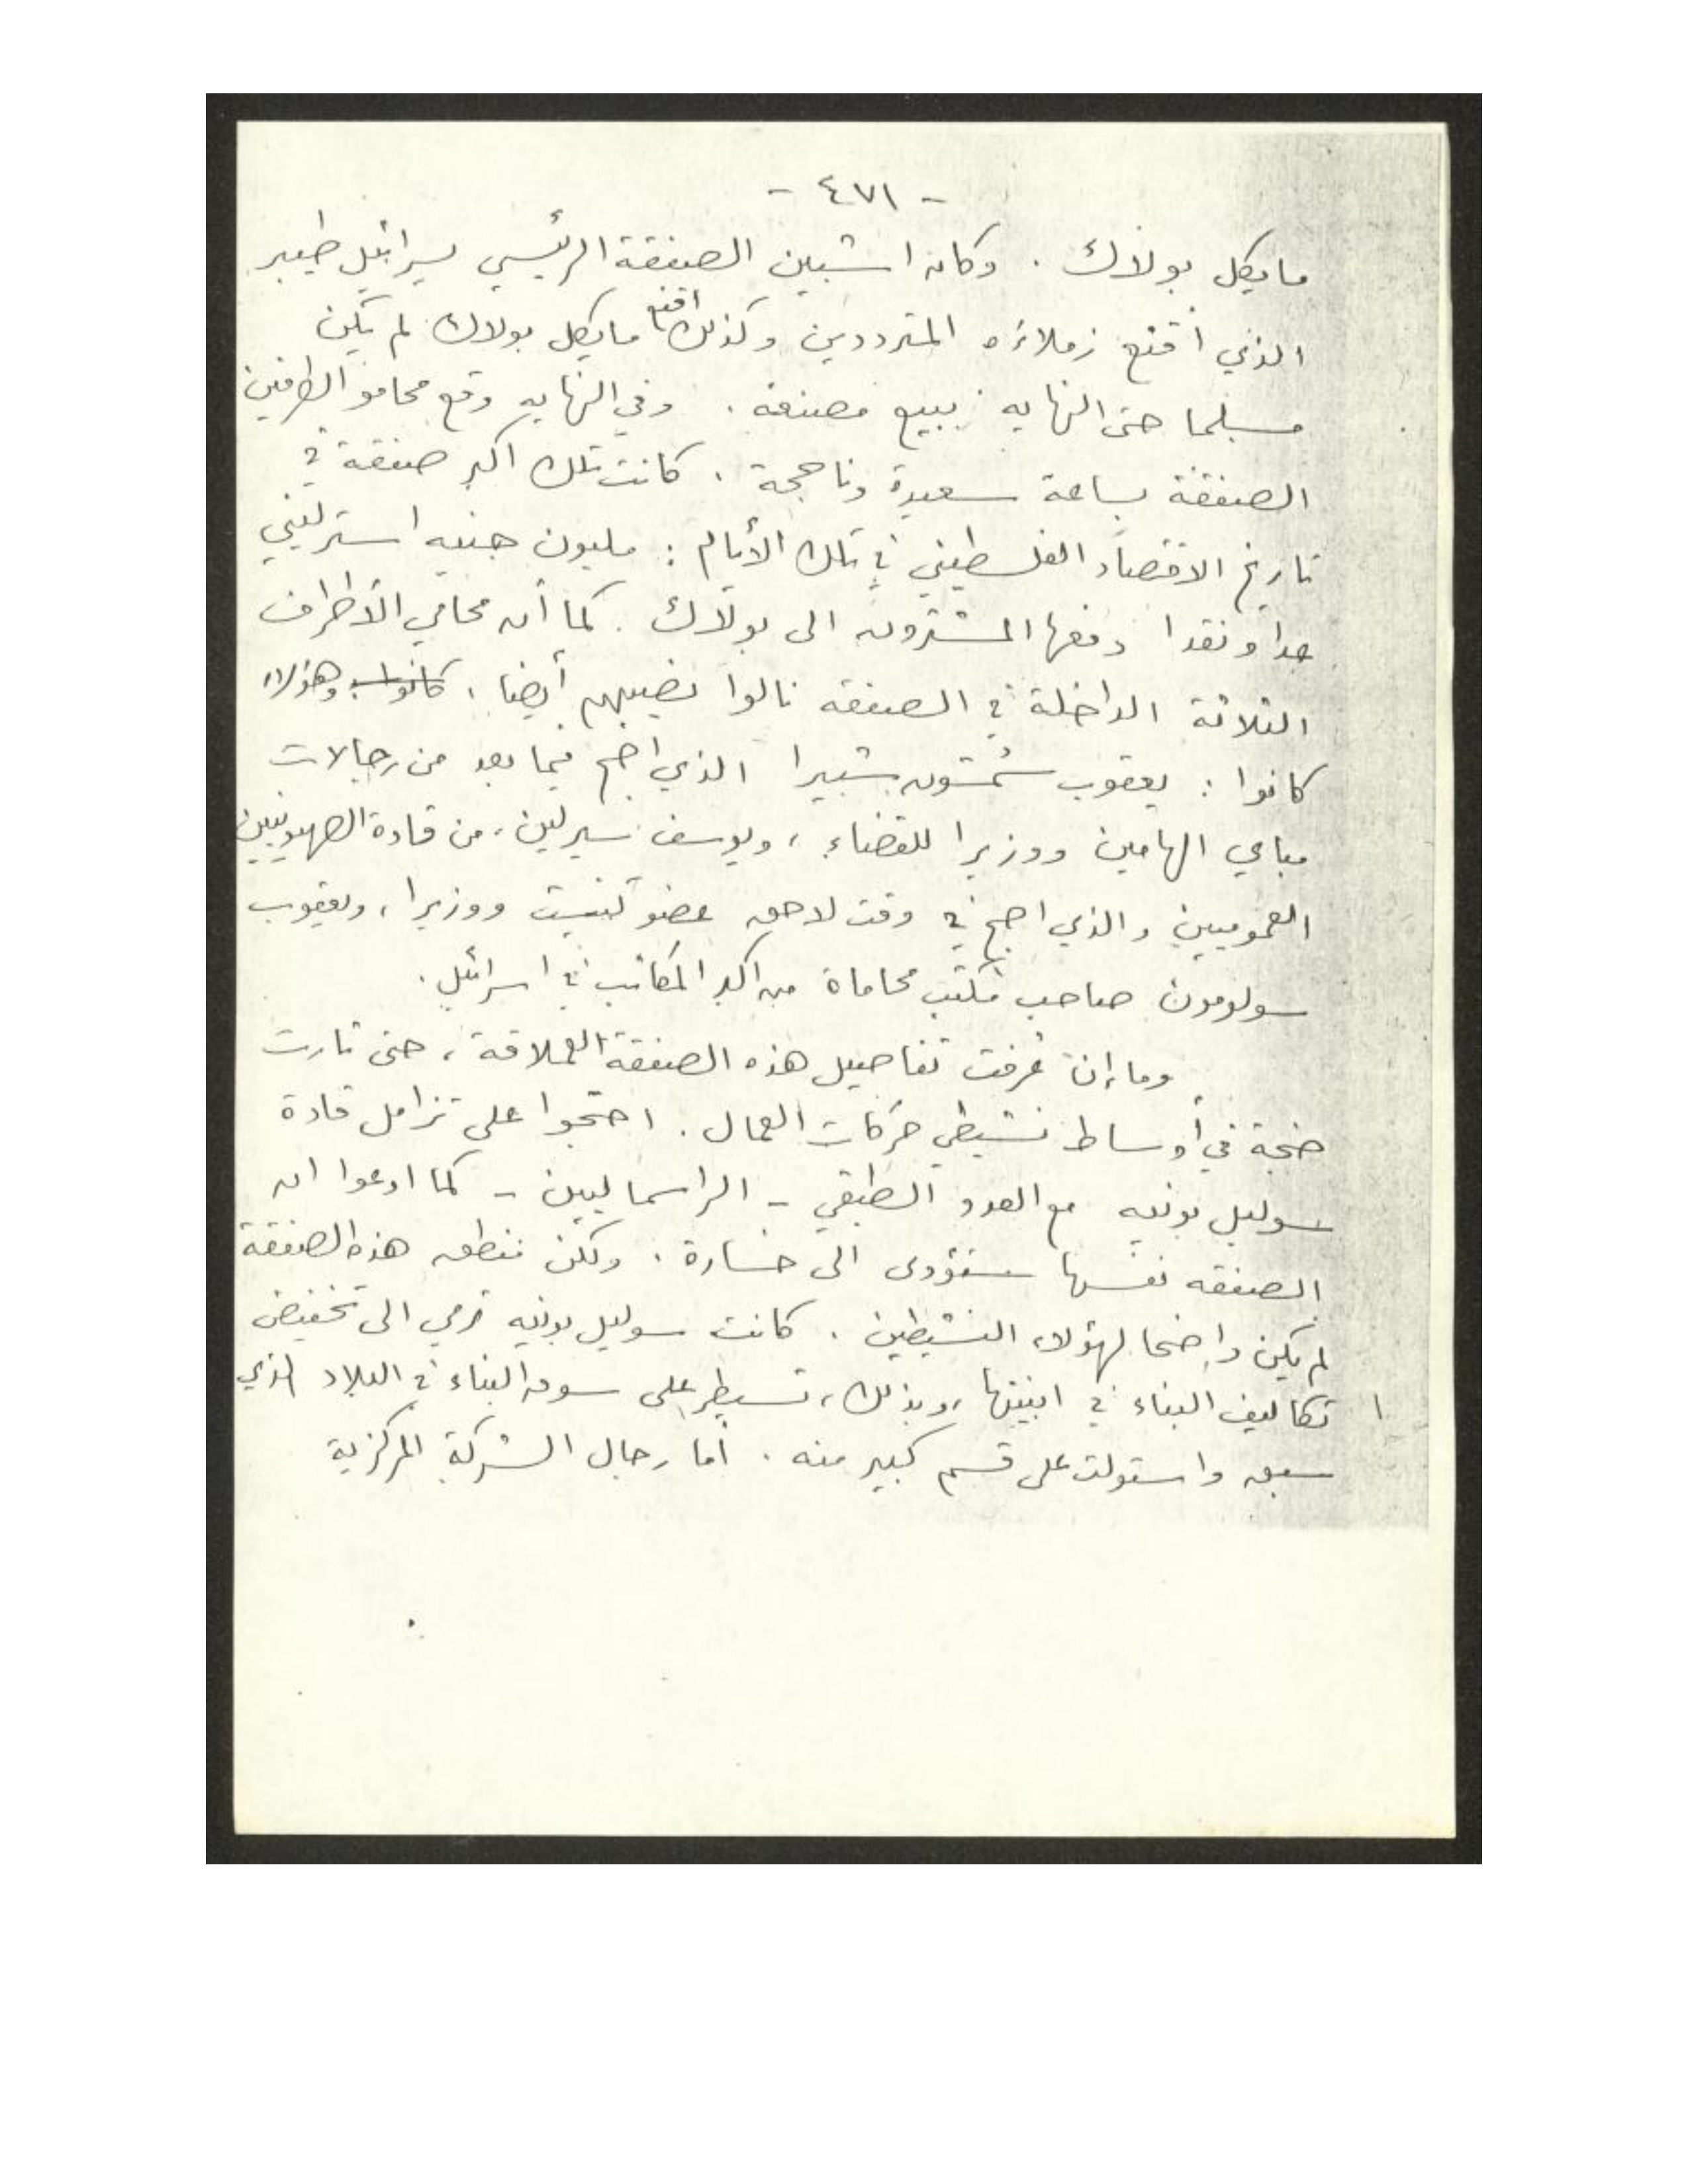 - ٤٧١ -
مايكل بولاك . وكان اشبين الصفقة الرئيسي يسرائيل طيبر
الذي أقنع زملاءه المترددين وكذلك اقنع مايكل بولاك لم يكن
مسلما حتى النهايه ببيع مصنعه . وفي النهايه وقع محامو الطرفين
الصفقة بساعة سعيدة وناجحة . كانت تلك اكبر صفقة في
تاريخ الاقتصاد الفلسطيني في تلك الأيام : مليون جنيه استرليني
عدا ونقدا دفعها المشترون الى بولاك . كما أن محامي الأطراف
الثلاثة الداخلة في الصفقه نالوا نصيبهم أيضا . كانوا وهؤلاء
كانوا : يعقوب شمشون شبيرا الذي اصبح فيما بعد من رجالات
مباي الهامين ووزيرا للقضاء ، ويوسف سيرلين ، من قادة الصهيونيين
العموميين والذي اصبح في وقت لاحق عضو كنيست ووزيرا ، ويعقوب
سولومون صاحب مكتب محاماة من اكبر المكاتب في اسرائيل .
وما إن عرفت تفاصيل هذه الصفقة العملاقة ، حتى ثارت
ضجة في أوساط نشيطي حركات العمال . احتجوا على تزامل قادة
سوليل بونيه مع العدو الطبقي - الراسماليين - كما ادعوا ان
الصفقه نفسها ستؤدى الى خسارة . ولكن منطق هذه الصفقة
لم يكن واضحا لهؤلاء النشيطين . كانت سوليل بونيه ترمي الى تخفيض
تكاليف البناء في ابنيتها ، وبذلك ، تسيطر على سوق البناء في البلاد الذي
سبق واستولت على قسم كبير منه . أما رجال الشركة المركزية